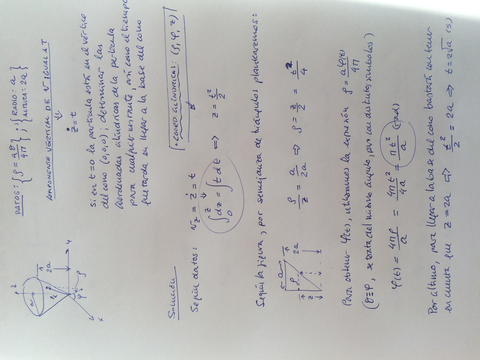 DATOS: { ρ = aθ/4π } ; { RADIO: a ; ALTURA: 2a }
COMPONENTE VERTICAL DE v IGUAL A t
ż = t
si en t=0 la partícula está en el vértice
del cono (0,0,0); determinar las
coordenadas cilíndricas de la partícula
para cualquier instante, así como el tiempo
que tarda en llegar a la base del cono
Solución
COORD. CILÍNDRICAS: (ρ, φ, z)
Según datos: v_z = ż = t
∫₀ᶻ dz = ∫ t dt ⇒ z = t²/2
Según la figura, por semejanza de triángulos plantearemos:
ρ/z = a/2a ⇒ ρ = z/2 = t²/4
Para obtener φ(t), utilizamos la expresión ρ = aφ(t)/4π
(θ≡φ, se trata del mismo ángulo, pero con distintos símbolos)
φ(t) = 4πρ/a = 4πt²/4a = πt²/a (rad)
Por último, para llegar a la base del cono bastará con tener
en cuenta que z = 2a ⇒ t²/2 = 2a ⇒ t = 2√a (s)